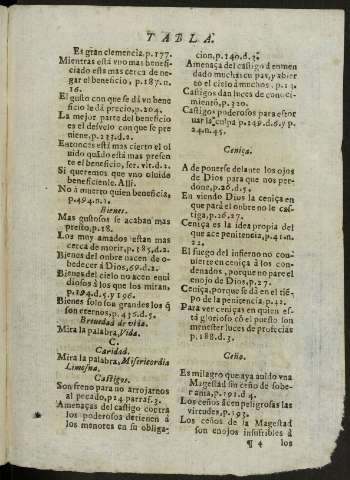 TABLA.
Es gran clemencia, p.177.
Mientras està vno mas benefi-
ciado esta mas cerca de ne-
gar el beneficio, p.187.n.
16.
El gusto con que se dà vn bene
ficio le dà precio, p.204.
La mejor parte del beneficio
es el desvelo con que se pre
niene, p.233.d.2.
Entonces està mas cierto el ol
uido quãdo està mas presen
te el beneficio, ser. vlt. d.2.
Si queremos que vno oluide
beneficiente. Alli.
No à muerto quien beneficia,
p.494.n.1.
Bienes.
Mas gustosos se acaban mas
presto, p.18.
Los muy amados estan mas
cerca de morir, p.185,d.2.
Bienes del onbre nacen de o-
bedecer à Dios, 69.d.2.
Bienes del cielo no àcen enui
diosos à los que los miran,
p.194.d.5.y 196.
Bienes solo son grandes los q̃
son eternos, p.436.d.5.
Breuedad de vida.
Mira la palabra, Vida.
C.
Caridad.
Mira la palabra, Misericordia
Limosna.
Castigos.
Son freno para no arrojarnos
al pecado, p.24. parraf.3.
Amenaças del castigo contra
los poderosos detienen à
los menores en su obliga-
cion, p.140.d.3.
Amenaça del castigo à enmen
dado muchas cu pas, y abier
to el cielo à muchos. p.13.
Castigos dan luces de conoci-
miento, p.320.
Castigos poderosos para estor
uar la culpa p.149.d.6.y p.
24.n.45.
Ceniça.
A de ponerse delante los ojos
de Dios para que nos per-
done, p.26.d.5.
En viendo Dios la ceniça en
que parà el onbre no le cas-
tiga, p.26.27.
Ceniça es la idea propia del
que ace penitencia, p.41.n.
22.
El fuego del infierno no con-
uierte en ceniça à los con-
denados, porque no pare el
enojo de Dios, p.27.
Ceniça, porque se dà en el tiẽ-
po de la penitencia, p.42.
Para ver ceniças en quien es-
tà glorioso cõ el puesto son
menester luces de profecias
p.188.d.3.
Ceño.
Es milagro que aya auido vna
Magestad sin ceño de sobe-
rania, p.191.d.4.
Los ceños àcen peligrosas las
virtudes, p.193.
Los ceños de la Magestad
son enojos insufribles à
¶ 4 los